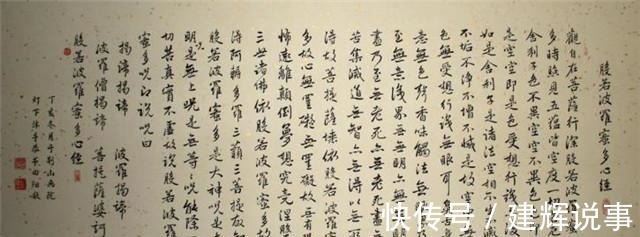 般若波羅蜜多心經
觀自在菩薩行深般若波羅
多時照見五蘊皆空度一切
舍利子色不異空空不異色
是空空即是色受想行識
如是舍利子是諸法空相不
不垢不淨不增不減是故空
色無受想行識無眼耳
意無色聲香味觸法無
至無識界無無明亦無
盡乃至無老死亦無老死盡
苦集滅道無智亦無得以無
菩提薩埵依般若波羅
多故心無罣礙無罣礙故無有
怖遠離顛倒夢想究竟涅槃
三世諸佛依般若波羅蜜多
得阿耨多羅三藐三菩提故知
般若波羅蜜多是大神咒是
明咒是無上咒是無等咒能除
切苦真實不虛故說般若波羅
蜜多咒即說咒曰
揭諦揭諦 波羅揭諦
波羅僧揭諦 菩提薩婆訶
般若波羅蜜多心經
丁亥冬月於山画院
灯下
快传号 / 建辉说事